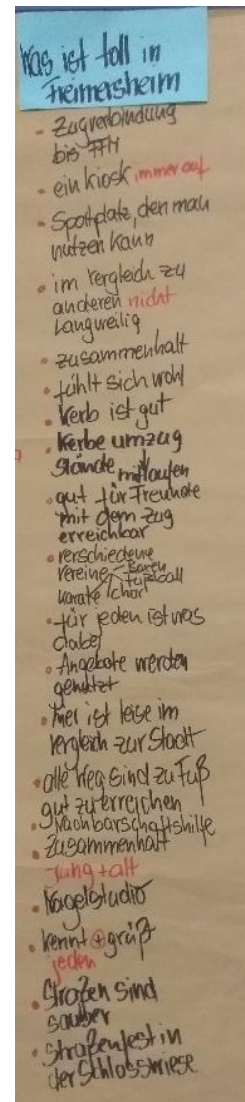 Was ist toll in
Freimersheim
- Zugverbindung
bis FFM
- ein Kiosk immer auf
- Sportplatz, den man
nutzen kann
• im Vergleich zu
anderen nicht
langweilig
• zusammenhalt
• fühlt sich wohl
• Kerb ist gut
• Kerbe umzug
Stände mitlaufen
• gut für Freunde
mit dem Zug
erreichbar
• verschiedene
Vereine - Bären
Karate Chor Fußball
• für jeden ist was
dabei
• Angebote werden
genutzt
• hier ist leise im
Vergleich zur Stadt
• alle Weg sind zu Fuß
gut zu erreichen
• Nachbarschaftshilfe
• Zusammenhalt
Jung + alt
• Nagelstudio
• kennt + grüßt
jeden
• Straßen sind
sauber
• Straßenfest in
der Schlosswiese